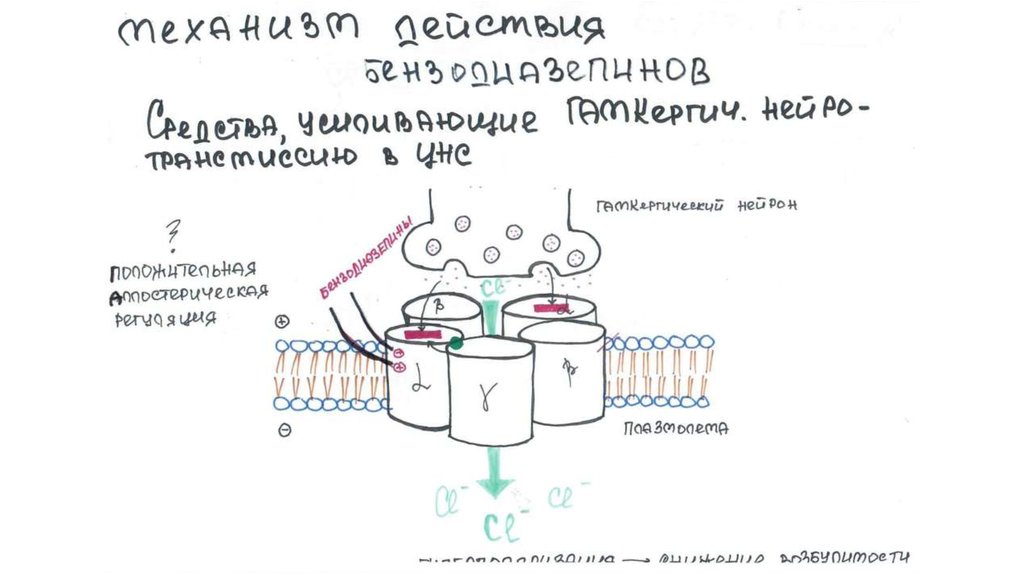 МЕХАНИЗМ ДЕЙСТВИЯ
БЕНЗОДИАЗЕПИНОВ
СРЕДСТВА, УСИЛИВАЮЩИЕ ГАМКЕРГИЧ. НЕЙРО-
ТРАНСМИССИЮ В ЦНС
ГАМКЕРГИЧЕСКИЙ НЕЙРОН
?
ПОЛОЖИТЕЛЬНАЯ
АЛЛОСТЕРИЧЕСКАЯ
РЕГУЛЯЦИЯ
БЕНЗОДИОЗЕПИНЫ
Cl⁻
β α
⊕
⊖
⊕
α γ β
⊖
ПЛАЗМОЛЕМА
Cl⁻ Cl⁻
Cl⁻
→ СНИЖЕНИЕ ВОЗБУДИМОСТИ